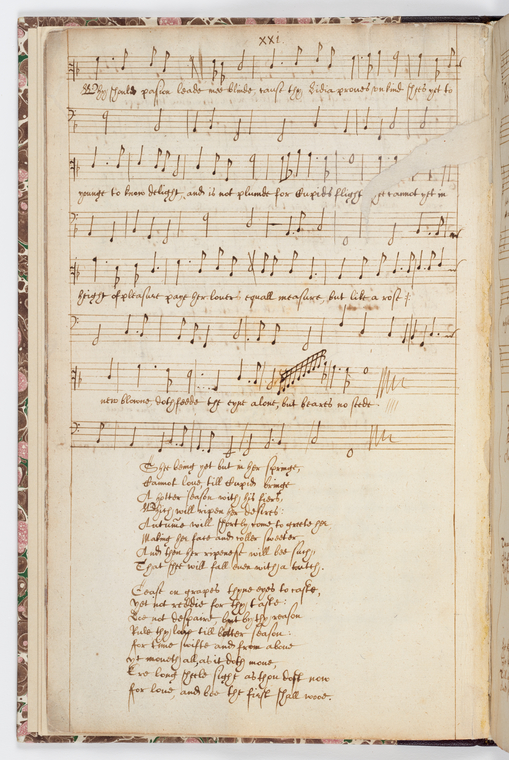 XXI
Why should passion leade mee blinde, cause thy Lidia proves unkind shees yet to
younge to know delight, and is not plumde for Cupids flight she cannot yet in
hight of pleasure page her lovers equall measure, but like a rose
new blowne, doth feede the eyne alone, but beares no seede
Shee being yet but in her springe,
Cannot love, till Cupid bringe
A hotter season with his fiers,
Which will ripen her desires:
Autume will shortly come to greete her
Making her face and coller sweeter
And then her ripenesse will bee such,
That shee will fall even with a tutch.
Cease on grapes thyne eyes to caste,
yet not reddie for thy taste:
Bee not despaire, but by thy reason
Rule thy till hotter season.
for time swifte and from above
yt moveth all, as it doth move,
Ere long sheele sight as thou dost now
for love, and bee the first shall wooe.